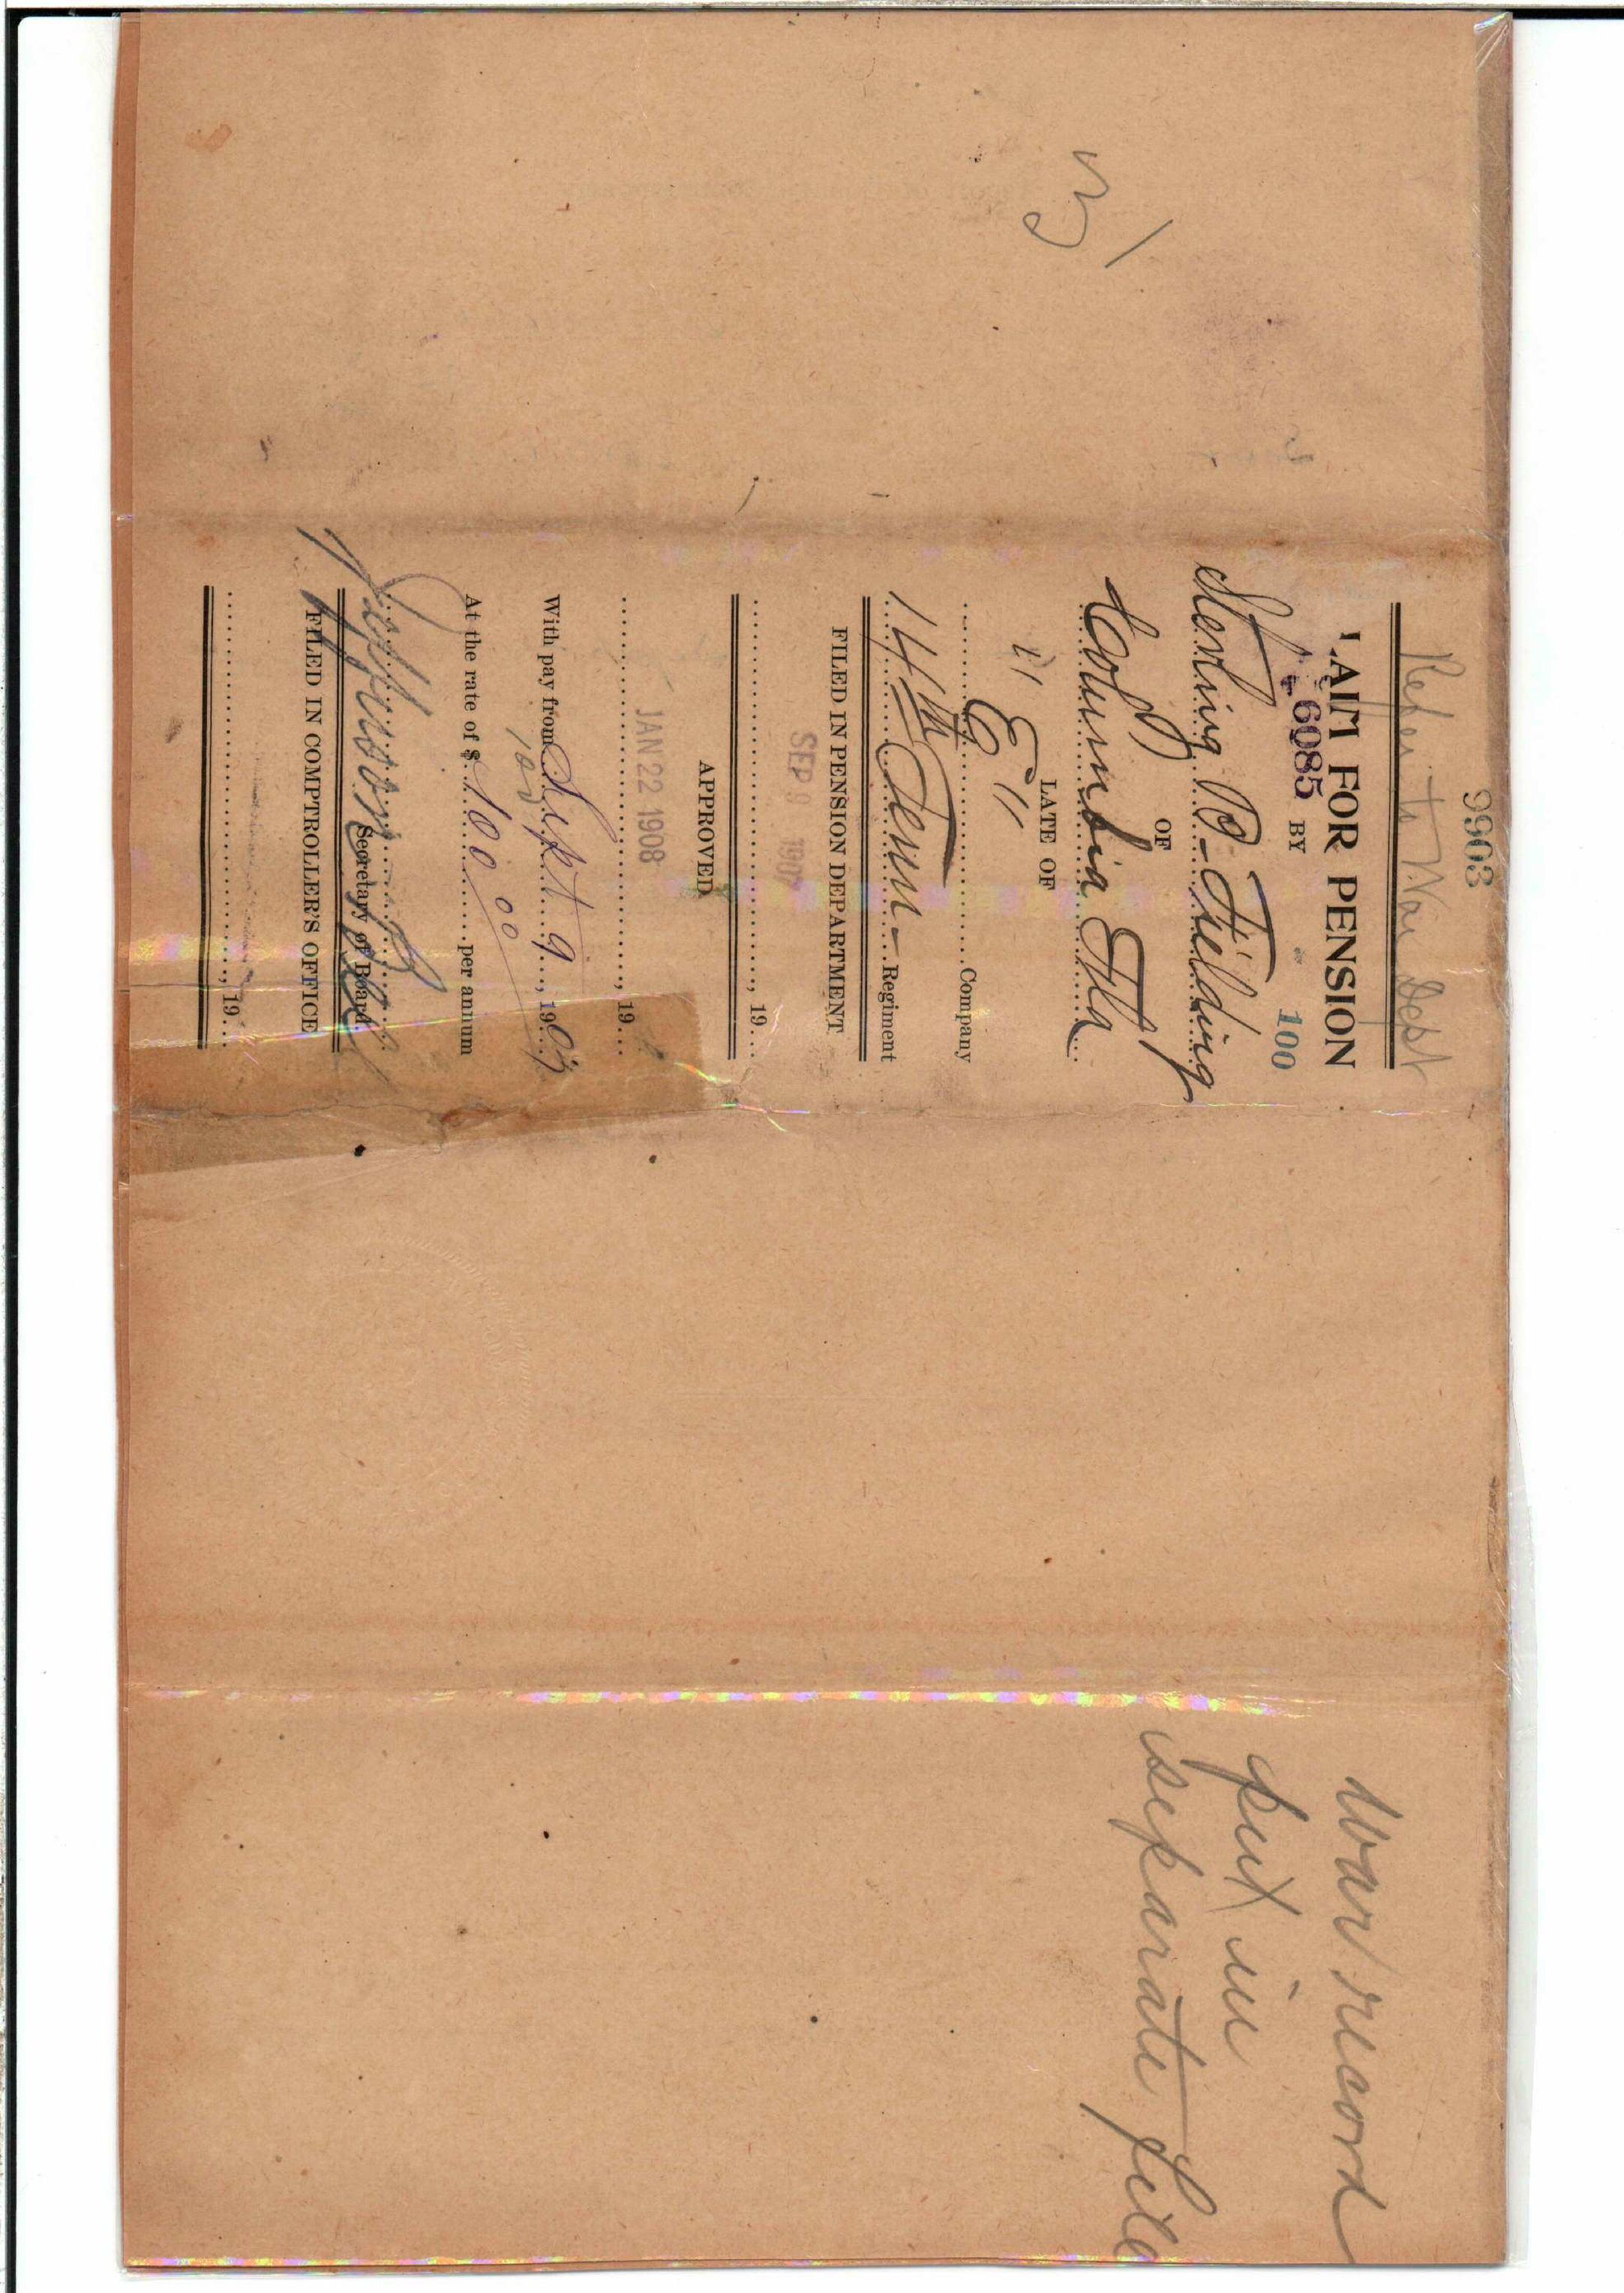 9903
Refer to War Dept
CLAIM FOR PENSION
6085 BY 100
Sterling B. Fielding
OF
Columbia Fla
LATE OF
"E" Company
14th Tenn Regiment
FILED IN PENSION DEPARTMENT
SEP 9 1907
, 19
APPROVED
JAN 22 1908
, 19
With pay from Sept 9, 1907
100
At the rate of $ 100 00 per annum
Jefferson B
Secretary of Board.
FILED IN COMPTROLLER'S OFFICE
, 19
War record
put in
separate file